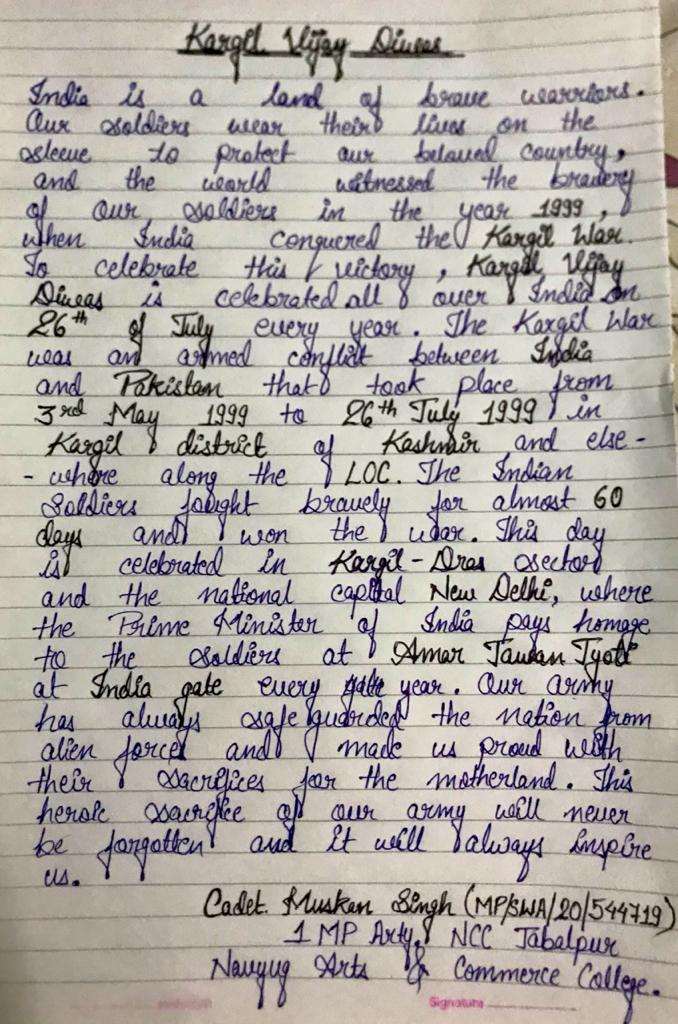 Kargil Vijay Diwas
India is a land of brave warriors.
Our soldiers wear their lives on the
sleeve to protect our beloved country,
and the world witnessed the bravery
of our soldiers in the year 1999,
when India conquered the Kargil War.
To celebrate this victory, Kargil Vijay
Diwas is celebrated all over India on
26th of July every year. The Kargil War
was an armed conflict between India
and Pakistan that took place from
3rd May 1999 to 26th July 1999 in
Kargil district of Kashmir and else-
- where along the LOC. The Indian
Soldiers fought bravely for almost 60
days and won the war. This day
is celebrated in Kargil-Dras sector
and the national capital New Delhi, where
the Prime Minister of India pays homage
to the soldiers at Amar Jawan Jyoti
at India gate every year. Our army
has always safeguarded the nation from
alien forces and made us proud with
their sacrifices for the motherland. This
heroic sacrifice of our army will never
be forgotten and it will always inspire
us.
Cadet. Muskan Singh (MP/SWA/20/544719)
1 MP Arty, NCC Jabalpur
Navyug Arts & Commerce College.
Signature